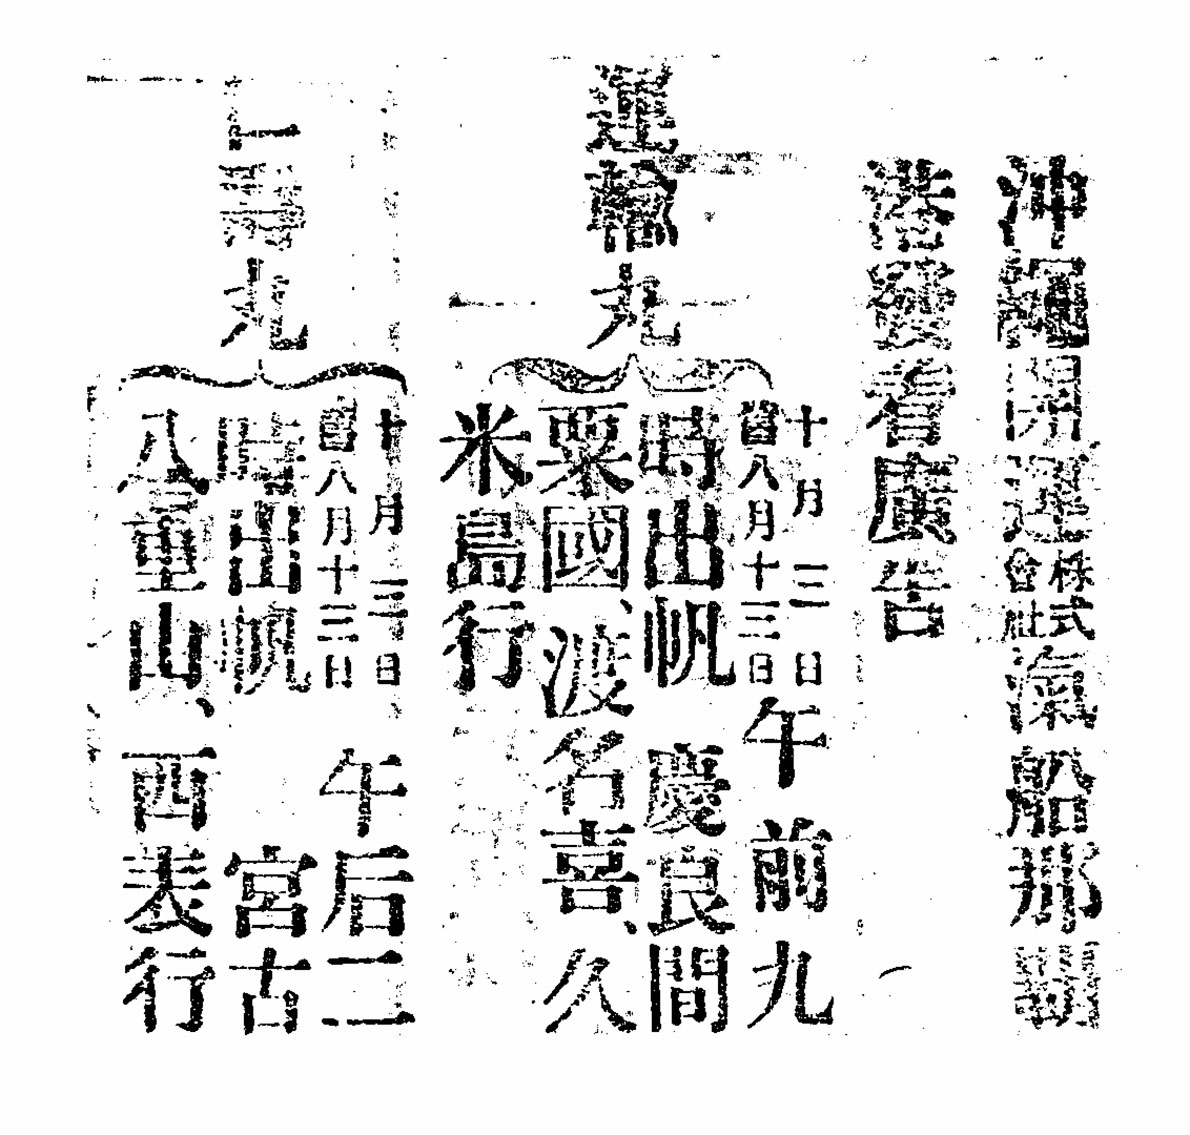 沖繩開運株式會社汽船航
發着廣告
運 丸
十月二日
舊八月十三日 午前九
時出帆 慶良間
粟國、渡名喜、久
米島行
丸
十月三日
舊八月十三日 午后二
時出帆 宮古
八重山、西表行